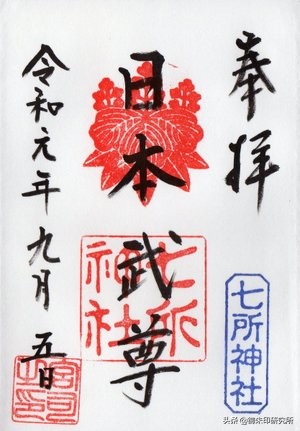 奉拝
日本武尊
七所神社
令和元年九月五日
七所神社
宮司之印
头条@御朱印研究所